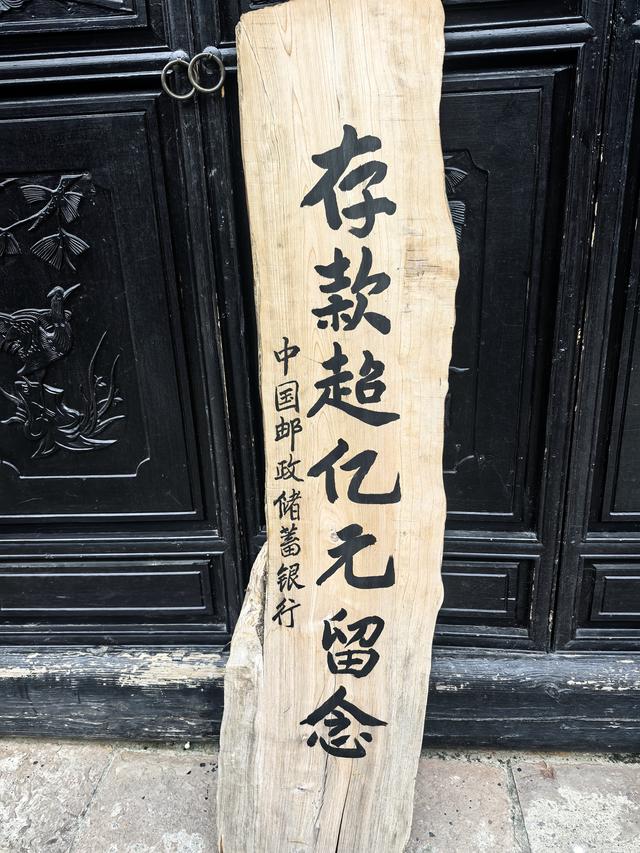 存款超亿元留念
中国邮政储蓄银行